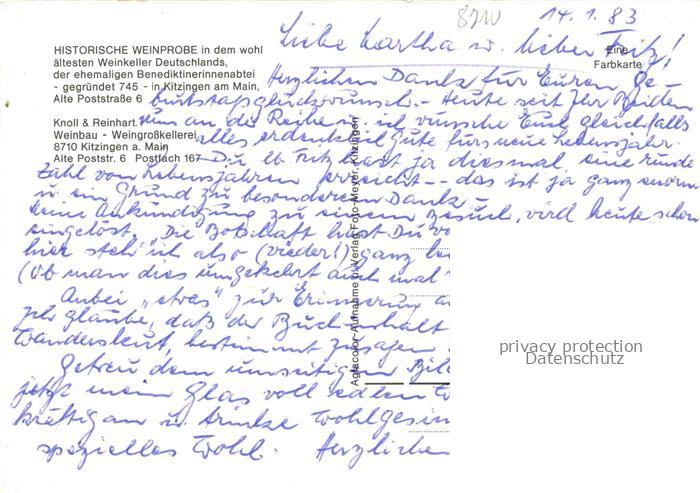 8710
14.1.83
Liebe Martha u. lieber Fritz!
HISTORISCHE WEINPROBE in dem wohl
ältesten Weinkeller Deutschlands,
der ehemaligen Benediktinerinnenabtei
- gegründet 745 - in Kitzingen am Main,
Alte Poststraße 6
Eine
Farbkarte
Knoll & Reinhart
Weinbau - Weingroßkellerei
8710 Kitzingen a. Main
Alte Poststr. 6 Postfach 167
Agfacolor-Aufnahme u. Verlag Foto-Meyer, Kitzingen
Herzlichen Dank für Euren Ge-
burtstagsglückwunsch. - Heute seid Ihr Beiden
nun an der Reihe u. ich wünsche Euch gleichfalls
alles erdenklich Gute fürs neue Lebensjahr.
Du lb. Fritz hast ja diesmal eine runde
Zahl von Lebensjahren erreicht - das ist ja ganz enorm
u. ein Grund zu besonderem Dank.
Deine Ankündigung zu einem Besuch, wird heute schon
eingelöst. Die Botschaft hast Du
hier steh' ich also (wieder!) ganz
(Ob man dies umgekehrt auch mal
Anbei "etwas" zur Erinnerung
Ich glaube, daß der Buchinhalt
Wandersleut, bestimmt zusagen
Getreu dem umseitigen
jetzt mein Glas voll edlen
kräftig an u. trinke
spezielles Wohl. Herzlichen
privacy protection
Datenschutz